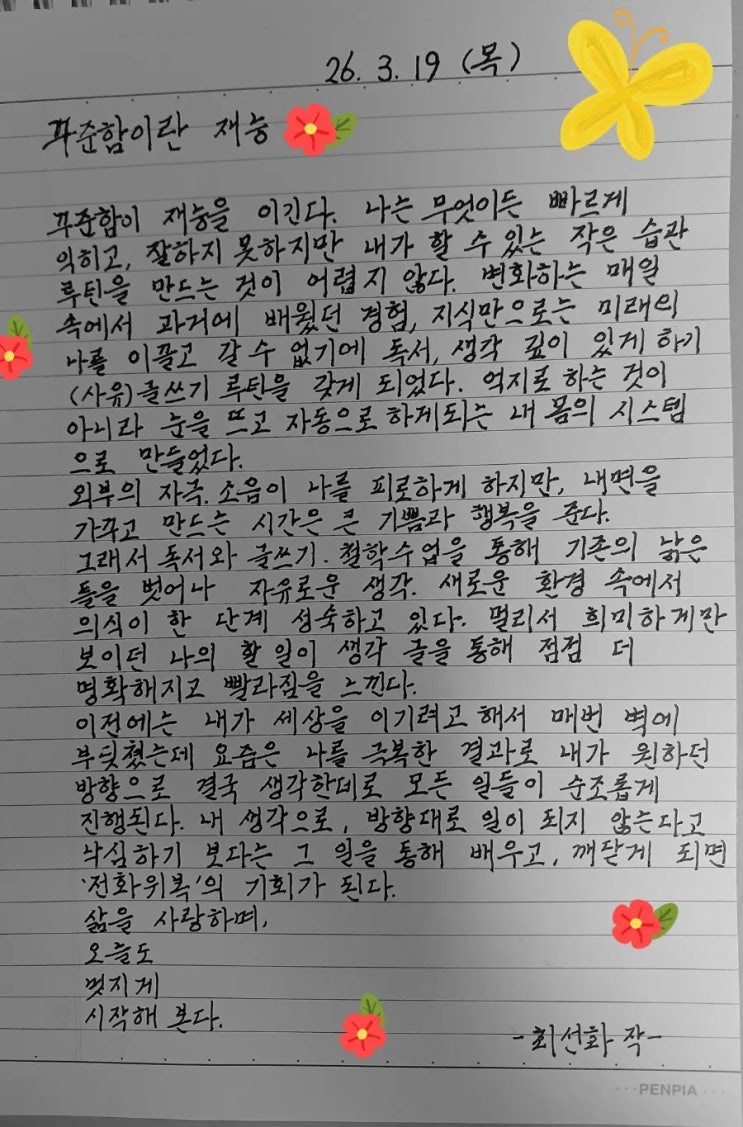 26. 3. 19 (목)
꾸준함이란 재능
꾸준함이 재능을 이긴다. 나는 무엇이든 빠르게
익히고, 잘하지 못하지만 내가 할 수 있는 작은 습관
루틴을 만드는 것이 어렵지 않다. 변화하는 매일
속에서 과거에 배웠던 경험, 지식만으로는 미래의
나를 이끌고 갈 수 없기에 독서, 생각 깊이 있게 하기
(사유)글쓰기 루틴을 갖게 되었다. 억지로 하는 것이
아니라 눈을 뜨고 자동으로 하게되는 내 몸의 시스템
으로 만들었다.
외부의 자극. 소음이 나를 피로하게 하지만, 내면을
가꾸고 만드는 시간은 큰 기쁨과 행복을 준다.
그래서 독서와 글쓰기. 철학수업을 통해 기존의 낡은
틀을 벗어나 자유로운 생각. 새로운 환경 속에서
의식이 한 단계 성숙하고 있다. 멀리서 희미하게만
보이던 나의 할 일이 생각 글을 통해 점점 더
명확해지고 빨라짐을 느낀다.
이전에는 내가 세상을 이기려고 해서 매번 벽에
부딪쳤는데 요즘은 나를 극복한 결과로 내가 원하던
방향으로 결국 생각한데로 모든 일들이 순조롭게
진행된다. 내 생각으로, 방향대로 일이 되지 않는다고
낙심하기 보다는 그 일을 통해 배우고, 깨닫게 되면
'전화위복'의 기회가 된다.
삶을 사랑하며,
오늘도
멋지게
시작해 본다.
-최선화 작-
PENPIA